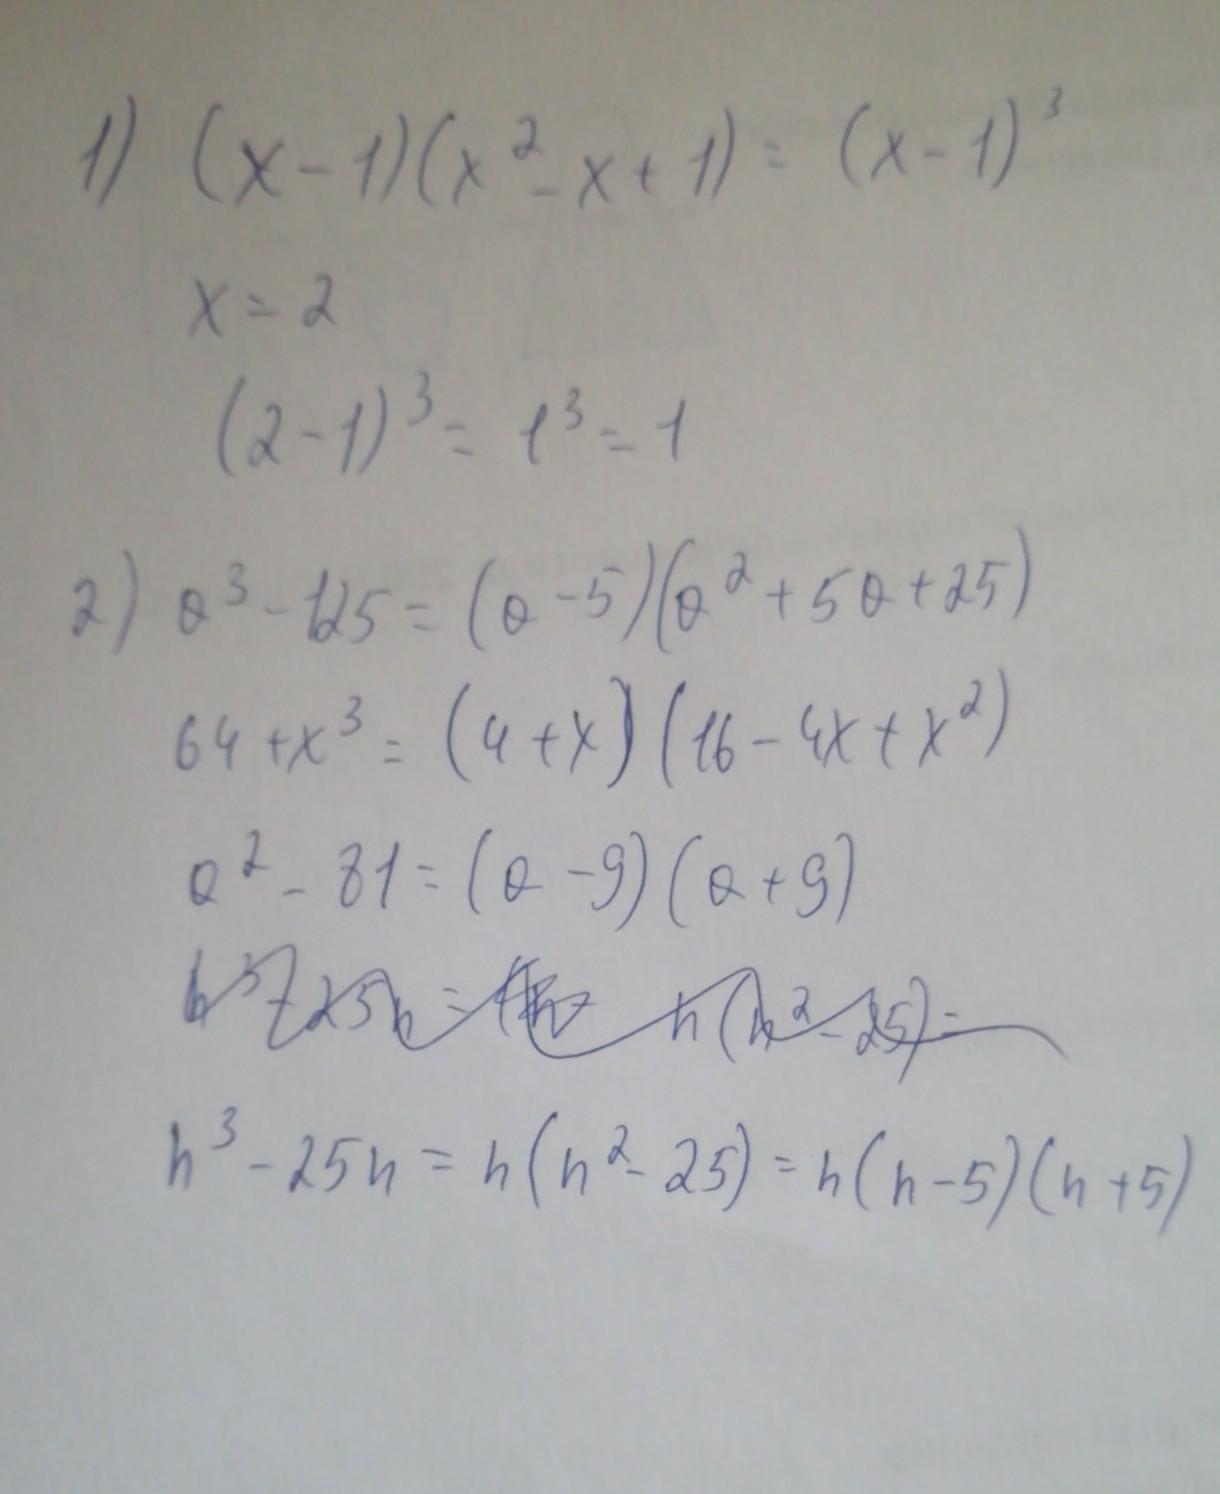 1) (x-1)(x²-x+1) = (x-1)³
x = 2
(2-1)³ = 1³ = 1
2) a³-125 = (a-5)(a²+5a+25)
64+x³ = (4+x)(16-4x+x²)
a²-81 = (a-9)(a+9)
h³-25h = h(h²-25) = h(h-5)(h+5)